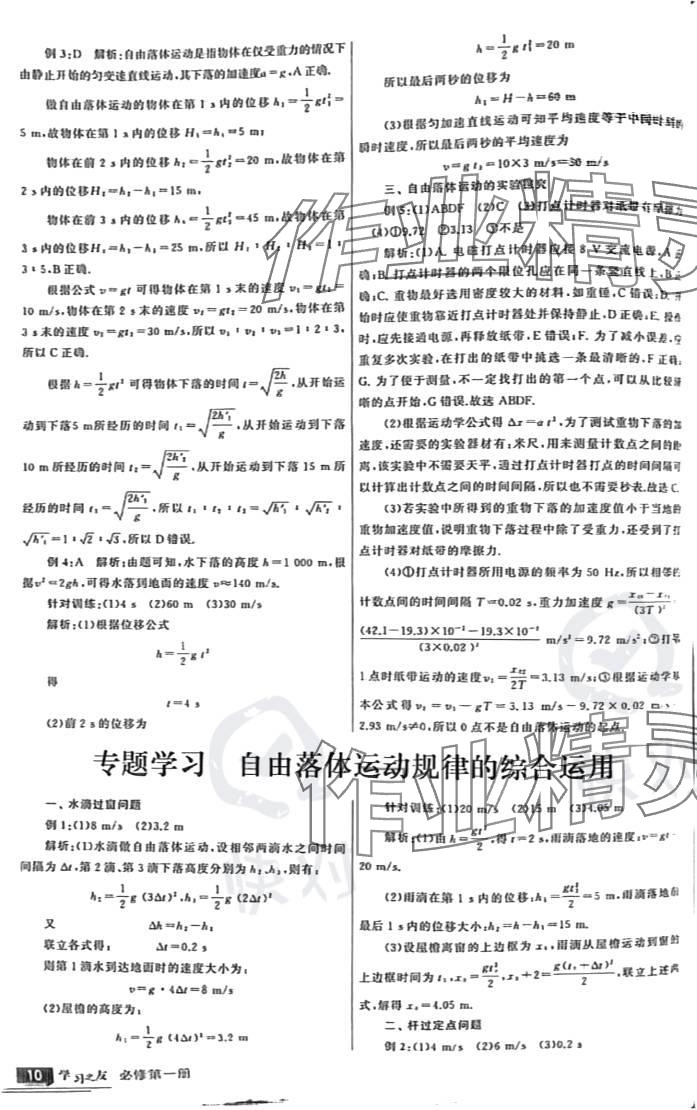 例3:D 解析:自由落体运动是指物体在仅受重力的情况下
由静止开始的匀变速直线运动,其下落的加速度a=g,A正确.
做自由落体运动的物体在第1 s内的位移h₁=1/2gt₁²=
5 m,故物体在第1 s内的位移H₁=h₁=5 m;
物体在前2 s内的位移h₂=1/2gt₂²=20 m,故物体在第
2 s内的位移H₂=h₂-h₁=15 m;
物体在前3 s内的位移h₃=1/2gt₃²=45 m,故物体在第
3 s内的位移H₃=h₃-h₂=25 m,所以H₁:H₂:H₃=1:
3:5,B正确.
根据公式v=gt可得物体在第1 s末的速度v₁=gt₁=
10 m/s,物体在第2 s末的速度v₂=gt₂=20 m/s,物体在第
3 s末的速度v₃=gt₃=30 m/s,所以v₁:v₂:v₃=1:2:3,
所以C正确.
根据h=1/2gt²可得物体下落的时间t=√(2h/g),从开始运
动到下落5 m所经历的时间t₁=√(2h'₁/g),从开始运动到下落
10 m所经历的时间t₂=√(2h'₂/g),从开始运动到下落15 m所
经历的时间t₃=√(2h'₃/g),所以t₁:t₂:t₃=√h'₁:√h'₂:
√h'₃=1:√2:√3,所以D错误.
例4:A 解析:由题可知,水下落的高度h=1 000 m,根
据v²=2gh,可得水落到地面的速度v≈140 m/s.
针对训练:(1)4 s (2)60 m (3)30 m/s
解析:(1)根据位移公式
h=1/2gt²
得
t=4 s
(2)前2 s的位移为
h=1/2gt₁²=20 m
所以最后两秒的位移为
h₁=H-h=60 m
(3)根据匀加速直线运动可知平均速度等于中间时刻的
瞬时速度,所以最后两秒的平均速度为
v=gt₃=10×3 m/s=30 m/s
三、自由落体运动的实验探究
例5:(1)ABDF (2)C (3)打点计时器对纸带有摩擦力
(4)①9.72 ②3.13 ③不是
解析:(1)A.电磁打点计时器应接8 V交流电源,A正
确;B.打点计时器的两个限位孔应在同一条竖直线上,B正
确;C.重物最好选用密度较大的材料,如重锤,C错误;D.开
始时应使重物靠近打点计时器处并保持静止,D正确;E.操作
时,应先接通电源,再释放纸带,E错误;F.为了减小误差,应
重复多次实验,在打出的纸带中挑选一条最清晰的,F正确;
G.为了便于测量,不一定找打出的第一个点,可以从比较清
晰的点开始,G错误.故选ABDF.
(2)根据运动学公式得Δx=at²,为了测试重物下落的加
速度,还需要的实验器材有:米尺,用来测量计数点之间的距
离,该实验中不需要天平,通过打点计时器打点的时间间隔可
以计算出计数点之间的时间间隔,所以也不需要秒表.故选C.
(3)若实验中所得到的重物下落的加速度值小于当地的
重物加速度值,说明重物下落过程中除了受重力,还受到了打
点计时器对纸带的摩擦力.
(4)①打点计时器所用电源的频率为50 Hz,所以相邻的
计数点间的时间间隔T=0.02 s,重力加速度g=/(3T)²
(42.1-19.3)×10⁻²-19.3×10⁻²/(3×0.02)² m/s²=9.72 m/s²;②打第
1点时纸带运动的速度v₁=/2T=3.13 m/s;③根据运动学基
本公式得v₀=v₁-gT=3.13 m/s-9.72×0.02 m/s
2.93 m/s≠0,所以0点不是自由落体运动的起点.
专题学习 自由落体运动规律的综合运用
一、水滴过窗问题
例1:(1)8 m/s (2)3.2 m
解析:(1)水滴做自由落体运动,设相邻两滴水之间时间
间隔为Δt,第2滴、第3滴下落高度分别为h₂、h₃,则有:
h₂=1/2g(3Δt)²,h₃=1/2g(2Δt)²
又 Δh=h₂-h₃
联立各式得: Δt=0.2 s
则第1滴水到达地面时的速度大小为:
v=g·4Δt=8 m/s
(2)屋檐的高度为:
h₁=1/2g(4Δt)²=3.2 m
针对训练:(1)20 m/s (2)15 m (3)4.05 m
解析:(1)由h=gt²/2,得t=2 s,雨滴落地的速度:v=gt=
20 m/s.
(2)雨滴在第1 s内的位移:h₁=gt₁²/2=5 m,雨滴落地前
最后1 s内的位移大小:h₂=h-h₁=15 m.
(3)设屋檐离窗的上边框为x₁,雨滴从屋檐运动到窗的
上边框时间为t₁,x₁=gt₁²/2,x₁+2=g(t₁+Δt)²/2,联立上述两
式,解得x₁=4.05 m.
二、杆过定点问题
例2:(1)4 m/s (2)6 m/s (3)0.2 s
10 学习之友 必修第一册
作业精灵
作业精灵
快对